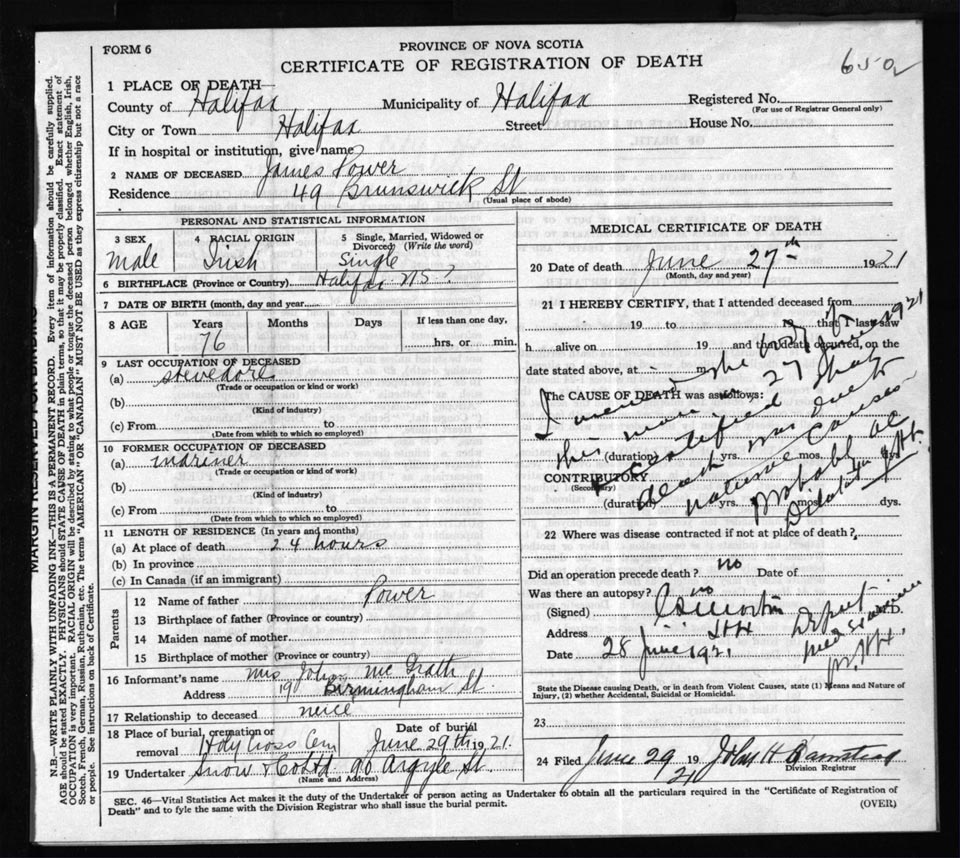 FORM 6
PROVINCE OF NOVA SCOTIA
CERTIFICATE OF REGISTRATION OF DEATH
1 PLACE OF DEATH
County of Halifax Municipality of Halifax Registered No.
(For use of Registrar General only)
City or Town Halifax Street House No.
If in hospital or institution, give name
2 NAME OF DECEASED James Power
Residence 49 Brunswick St
(Usual place of abode)
PERSONAL AND STATISTICAL INFORMATION
3 SEX 4 RACIAL ORIGIN 5 Single, Married, Widowed or Divorced (Write the word)
Male Irish Single
6 BIRTHPLACE (Province or Country) Halifax N S ?
7 DATE OF BIRTH (month, day and year)
8 AGE Years Months Days If less than one day,
76 hrs. or min.
9 LAST OCCUPATION OF DECEASED
(a) stevedore
(Trade or occupation or kind of work)
(b)
(Kind of industry)
(c) From to
(Date from which to which so employed)
10 FORMER OCCUPATION OF DECEASED
(a) mariner
(Trade or occupation or kind of work)
(b)
(Kind of industry)
(c) From to
(Date from which to which so employed)
11 LENGTH OF RESIDENCE (In years and months)
(a) At place of death 24 hours
(b) In province
(c) In Canada (if an immigrant)
Parents
12 Name of father Power
13 Birthplace of father (Province or country)
14 Maiden name of mother
15 Birthplace of mother (Province or country)
16 Informant's name Mrs John Mc Grath
Address 19 Birmingham St.
17 Relationship to deceased neice
18 Place of burial, cremation or removal Holy Cross Cem Date of burial June 29th 1921.
19 Undertaker Snow & Co Ltd 90 Argyle St.
(Name and Address)
MEDICAL CERTIFICATE OF DEATH
20 Date of death June 27th 1921
(Month, day and year)
21 I HEREBY CERTIFY, that I attended deceased from
19 to 19 that I last saw
h alive on 19 and that death occurred, on the
date stated above, at m.
The CAUSE OF DEATH was as follows:
I viewed the body of
this man on 27 June 1921
& certified that
death was due to
natural causes
probably ac
Dilatation
(duration) yrs. mos. dys
CONTRIBUTORY
(Secondary)
(duration) yrs. mos. dys.
22 Where was disease contracted if not at place of death?
Did an operation precede death? no Date of
Was there an autopsy? no
(Signed) M.D.
Address
Date 28 June 1921
State the Disease causing Death, or in death from Violent Causes, state (1) Means and Nature of Injury, (2) whether Accidental, Suicidal or Homicidal.
23
24 Filed June 29 1921 John H
Division Registrar
SEC. 46—Vital Statistics Act makes it the duty of the Undertaker or person acting as Undertaker to obtain all the particulars required in the "Certificate of Registration of
Death" and to fyle the same with the Division Registrar who shall issue the burial permit.
(OVER)
MARGIN RESERVED FOR BINDING
N.B.—WRITE PLAINLY WITH UNFADING INK—THIS IS A PERMANENT RECORD. Every item of information should be carefully supplied.
AGE should be stated EXACTLY. PHYSICIANS should STATE CAUSE OF DEATH in plain terms, so that it may be properly classified. Exact statement of
OCCUPATION is very important. RACIAL ORIGIN will be described by stating to what people or tongue the deceased person belonged whether English, Irish,
Scotch, French, German, Russian, Ruthenian, etc. The terms "AMERICAN" OR "CANADIAN" MUST NOT BE USED as they express citizenship but not a race
or people. See instructions on back of Certificate.